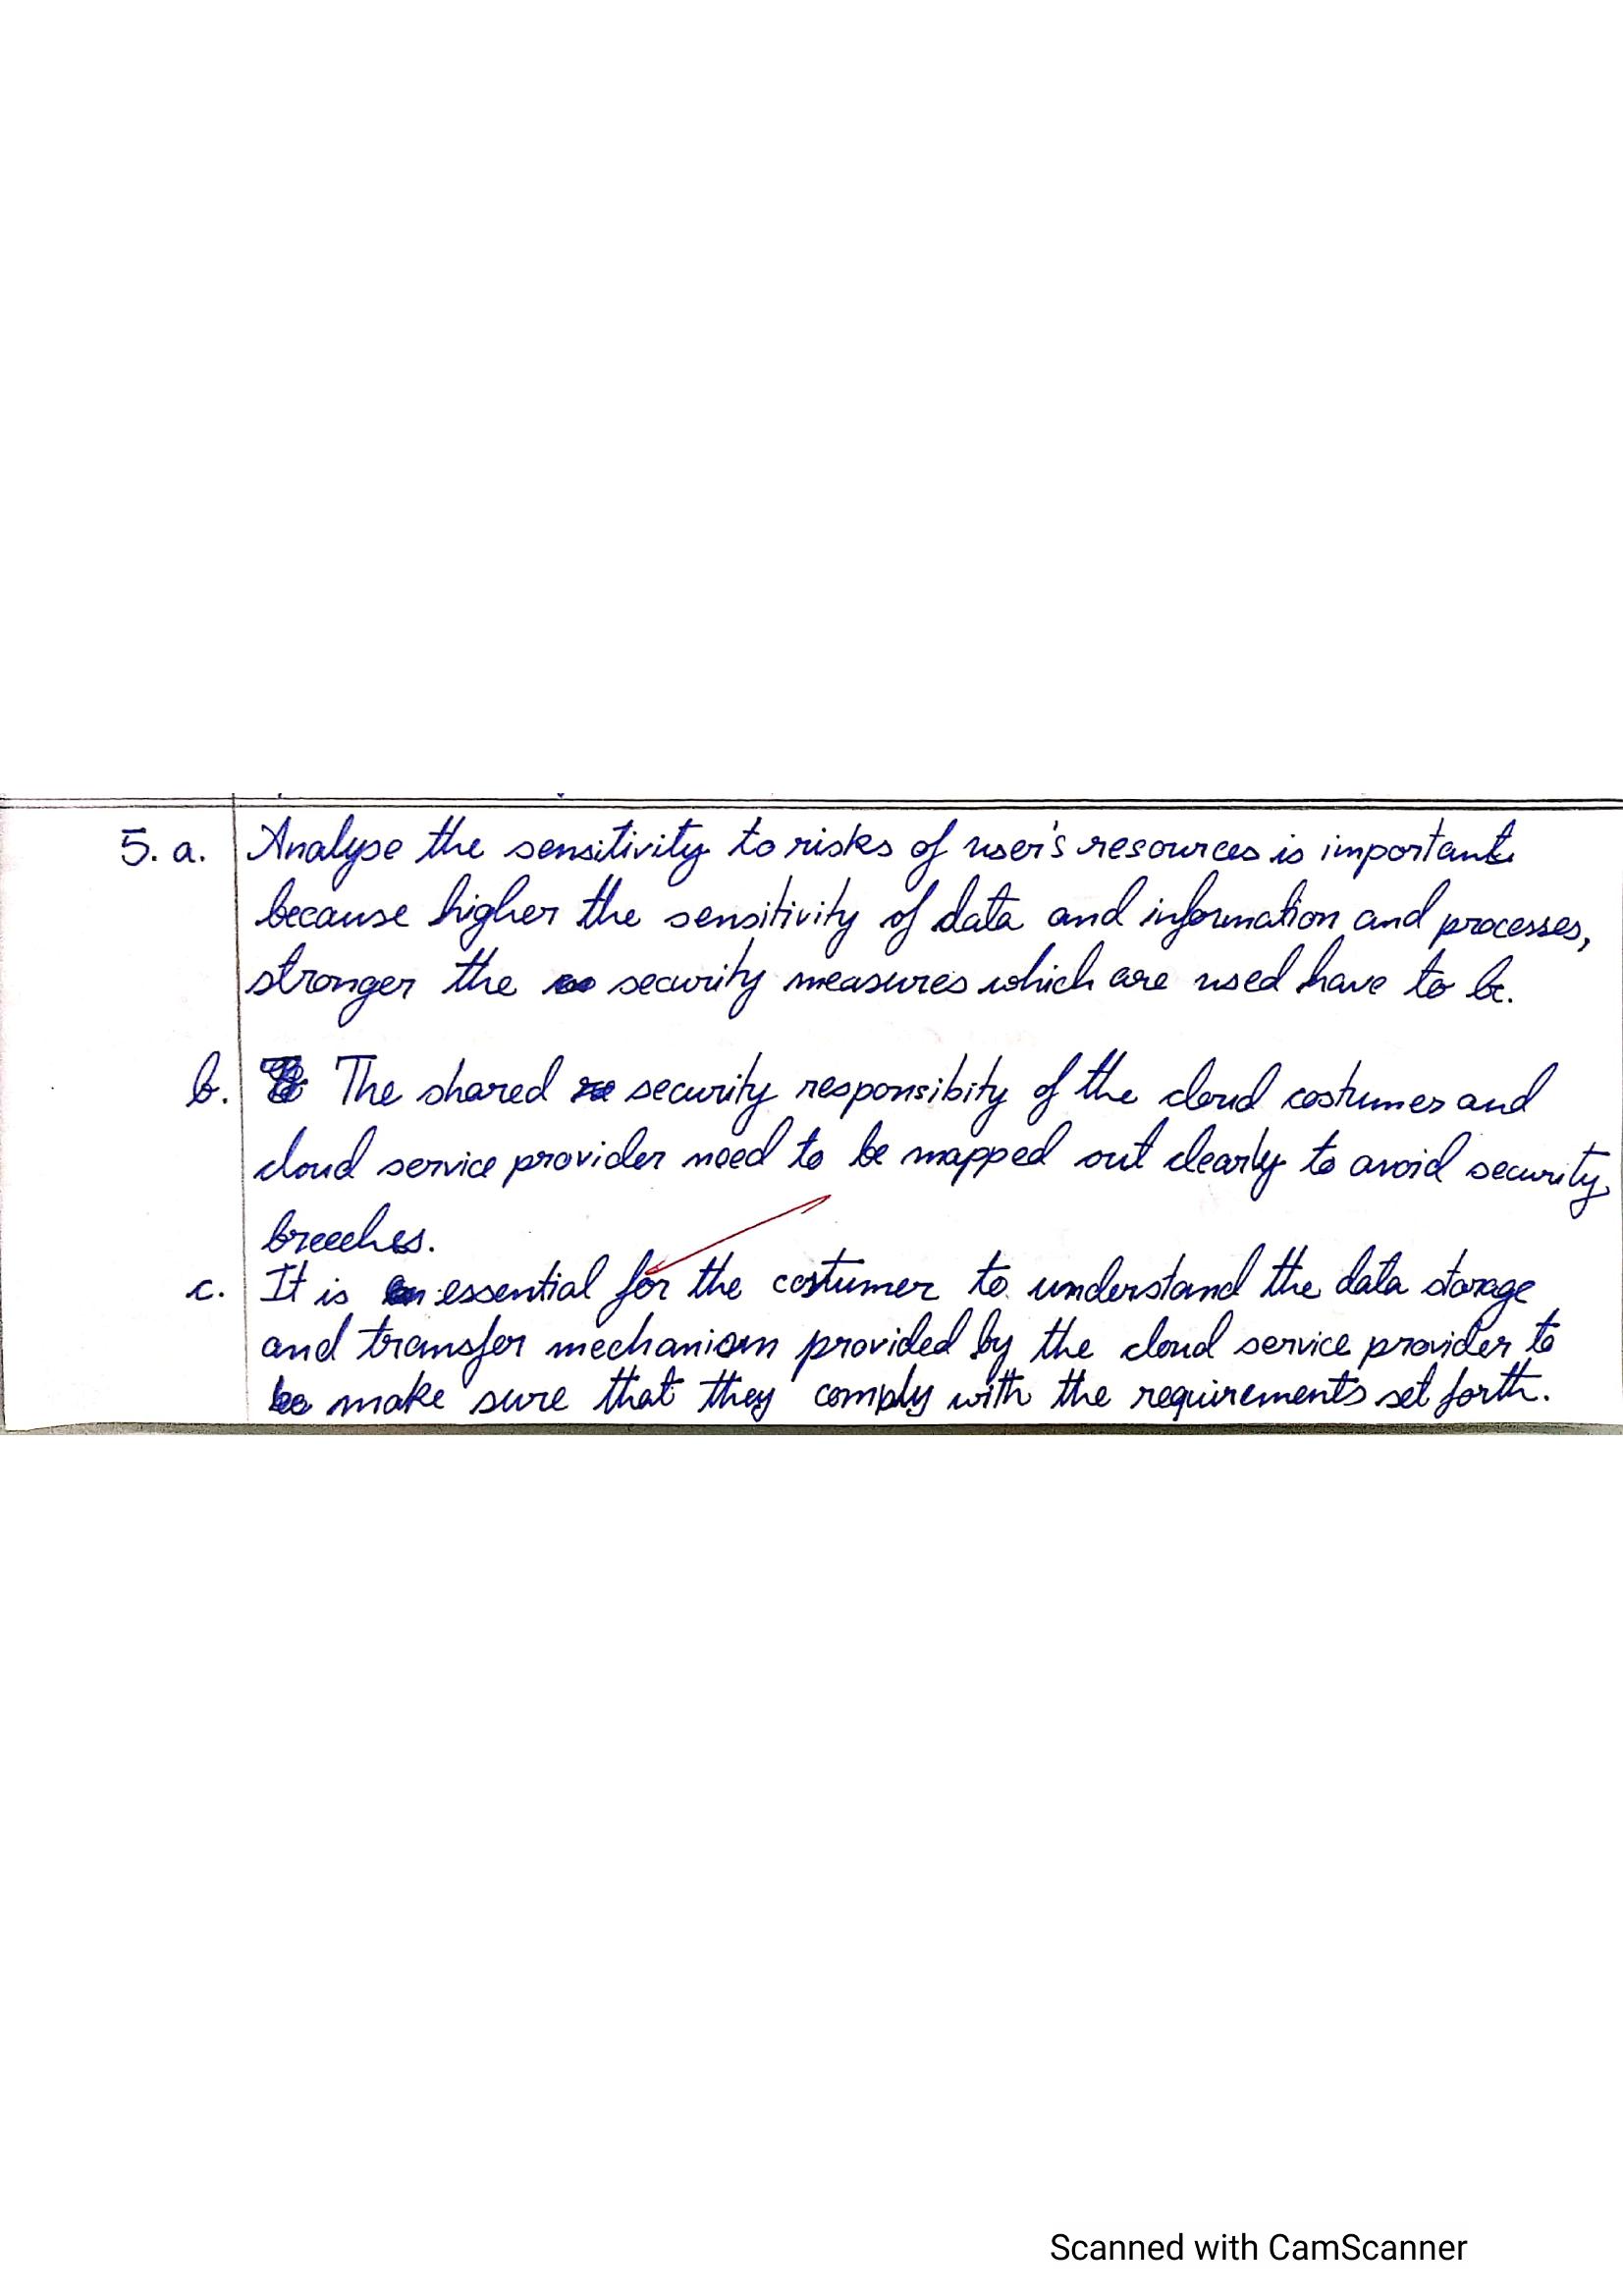 5. a. Analyse the sensitivity to risks of user's resources is important
because higher the sensitivity of data and information and processes,
stronger the security measures which are used have to be.
b. The shared security responsibity of the cloud costumer and
cloud service provider need to be mapped out clearly to avoid security
breeches.
c. It is essential for the costumer to understand the data storage
and transfer mechanism provided by the cloud service provider to
make sure that they comply with the requirements set forth.
Scanned with CamScanner